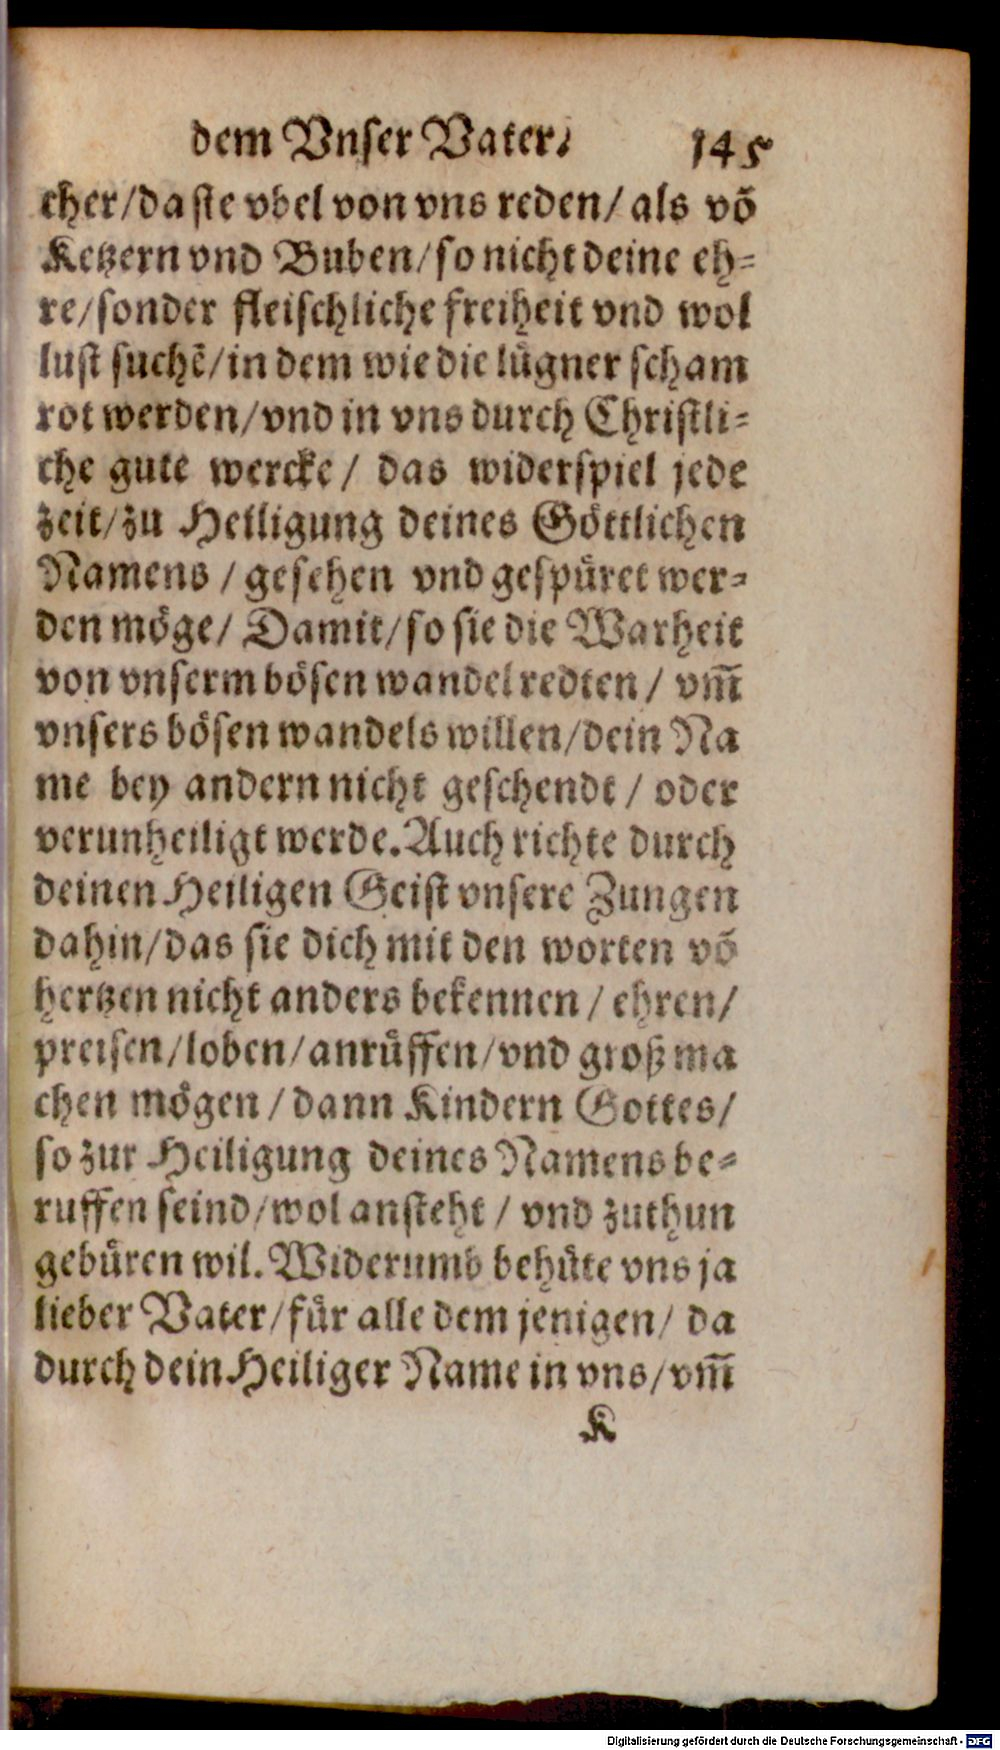 dem Vnser Vater. 145
cher/da sie vbel von vns reden/ als võ
Ketzern vnd Buben/so nicht deine eh-
re/sonder fleischliche freiheit vnd wol
lust suchẽ/in dem wie die lügner scham
rot werden/vnd in vns durch Christli-
che gute wercke/ das widerspiel jede
zeit/zu Heiligung deines Göttlichen
Namens / gesehen vnd gespüret wer-
den möge/ Damit/so sie die Warheit
von vnserm bösen wandel redten / vm̃
vnsers bösen wandels willen/dein Na
me bey andern nicht geschendt / oder
verunheiligt werde. Auch richte durch
deinen Heiligen Geist vnsere Zungen
dahin/das sie dich mit den worten võ
hertzen nicht anders bekennen / ehren/
preisen/loben/anrüffen/vnd groß ma
chen mögen / dann Kindern Gottes/
so zur Heiligung deines Namens be-
ruffen seind/wol ansteht / vnd zuthun
gebüren wil. Widerumb behüte vns ja
lieber Vater/für alle dem jenigen/ da
durch dein Heiliger Name in vns/vm̃
K
Digitalisierung gefördert durch die Deutsche Forschungsgemeinschaft - DFG